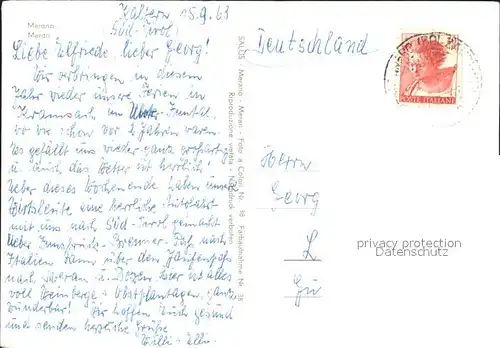 Merano
Meran
Kaltern 15.9.63
Süd-Tirol
Liebe Elfriede, lieber Georg!
Wir verbringen in diesem
Jahr wieder unsere Ferien in
Kramsach im Unter-Inntal,
wo wir schon vor 2 Jahren waren.
Es gefällt uns wieder ganz großartig
u. auch das Wetter ist herrlich
Ueber dieses Wochenende haben unsere
Wirtsleute eine herrliche Autofahrt
mit uns nach Süd-Tirol gemacht
Ueber Innsbruck-Brenner-Paß nach
Italien dann über den Jaufenpaß
nach Meran u. Bozen. Hier ist alles
voll Weinberge u. Obstplantagen, ganz
wunderbar! Wir hoffen Euch gesund
und senden herzliche Grüße
Willi + Elli.
SALUS - Merano - Meran - Foto a Colori Nr. 38 Farbaufnahme Nr. 38
Riproduzione vietata - Nachdruck verboten
Deutschland
POSTE ITALIANE
Herrn
Georg
L
Gu
privacy protection
Datenschutz